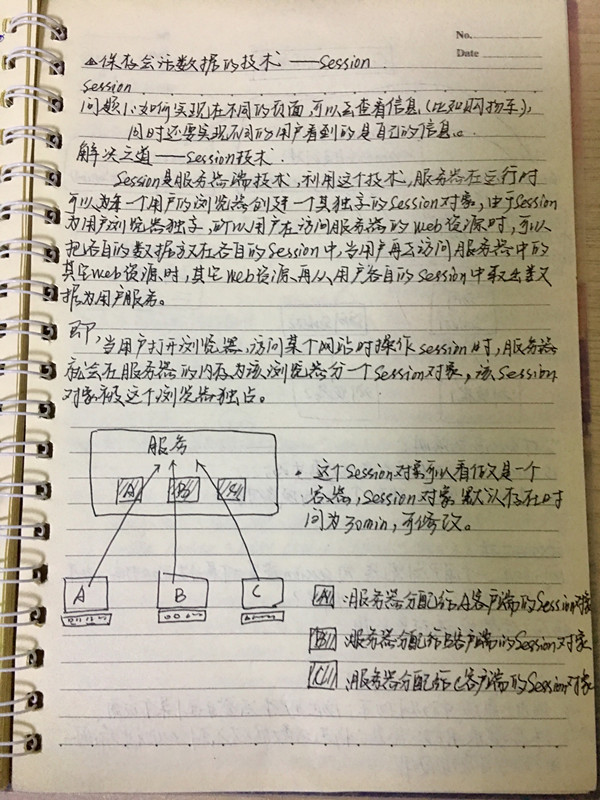 No.
Date
△保存会话数据的技术——Session
Session
问题1:如何实现在不同的页面,可以去查看信息(比如购物车),
同时还要实现不同的用户看到的是自己的信息。
解决之道——Session技术.
Session是服务器端技术,利用这个技术,服务器在运行时
可以为每一个用户的浏览器创建一个其独享的Session对象,由于Session
为用户浏览器独享,所以用户在访问服务器的web资源时,可以
把各自的数据放在各自的Session中,当用户再去访问服务器中的
其它web资源时,其它web资源再从用户各自的Session中取出数
据为用户服务。
即,当用户打开浏览器,访问某个网站时操作session时,服务器
就会在服务器的内存为该浏览器分一个Session对象,该Session
对象被这个浏览器独占。
服务
A B C
A B C
• 这个Session对象可以看做是一个
容器,Session对象默认存在时
间为30min,可修改。
A :服务器分配给A客户端的Session对象
B :服务器分配给B客户端的Session对象
C :服务器分配给C客户端的Session对象